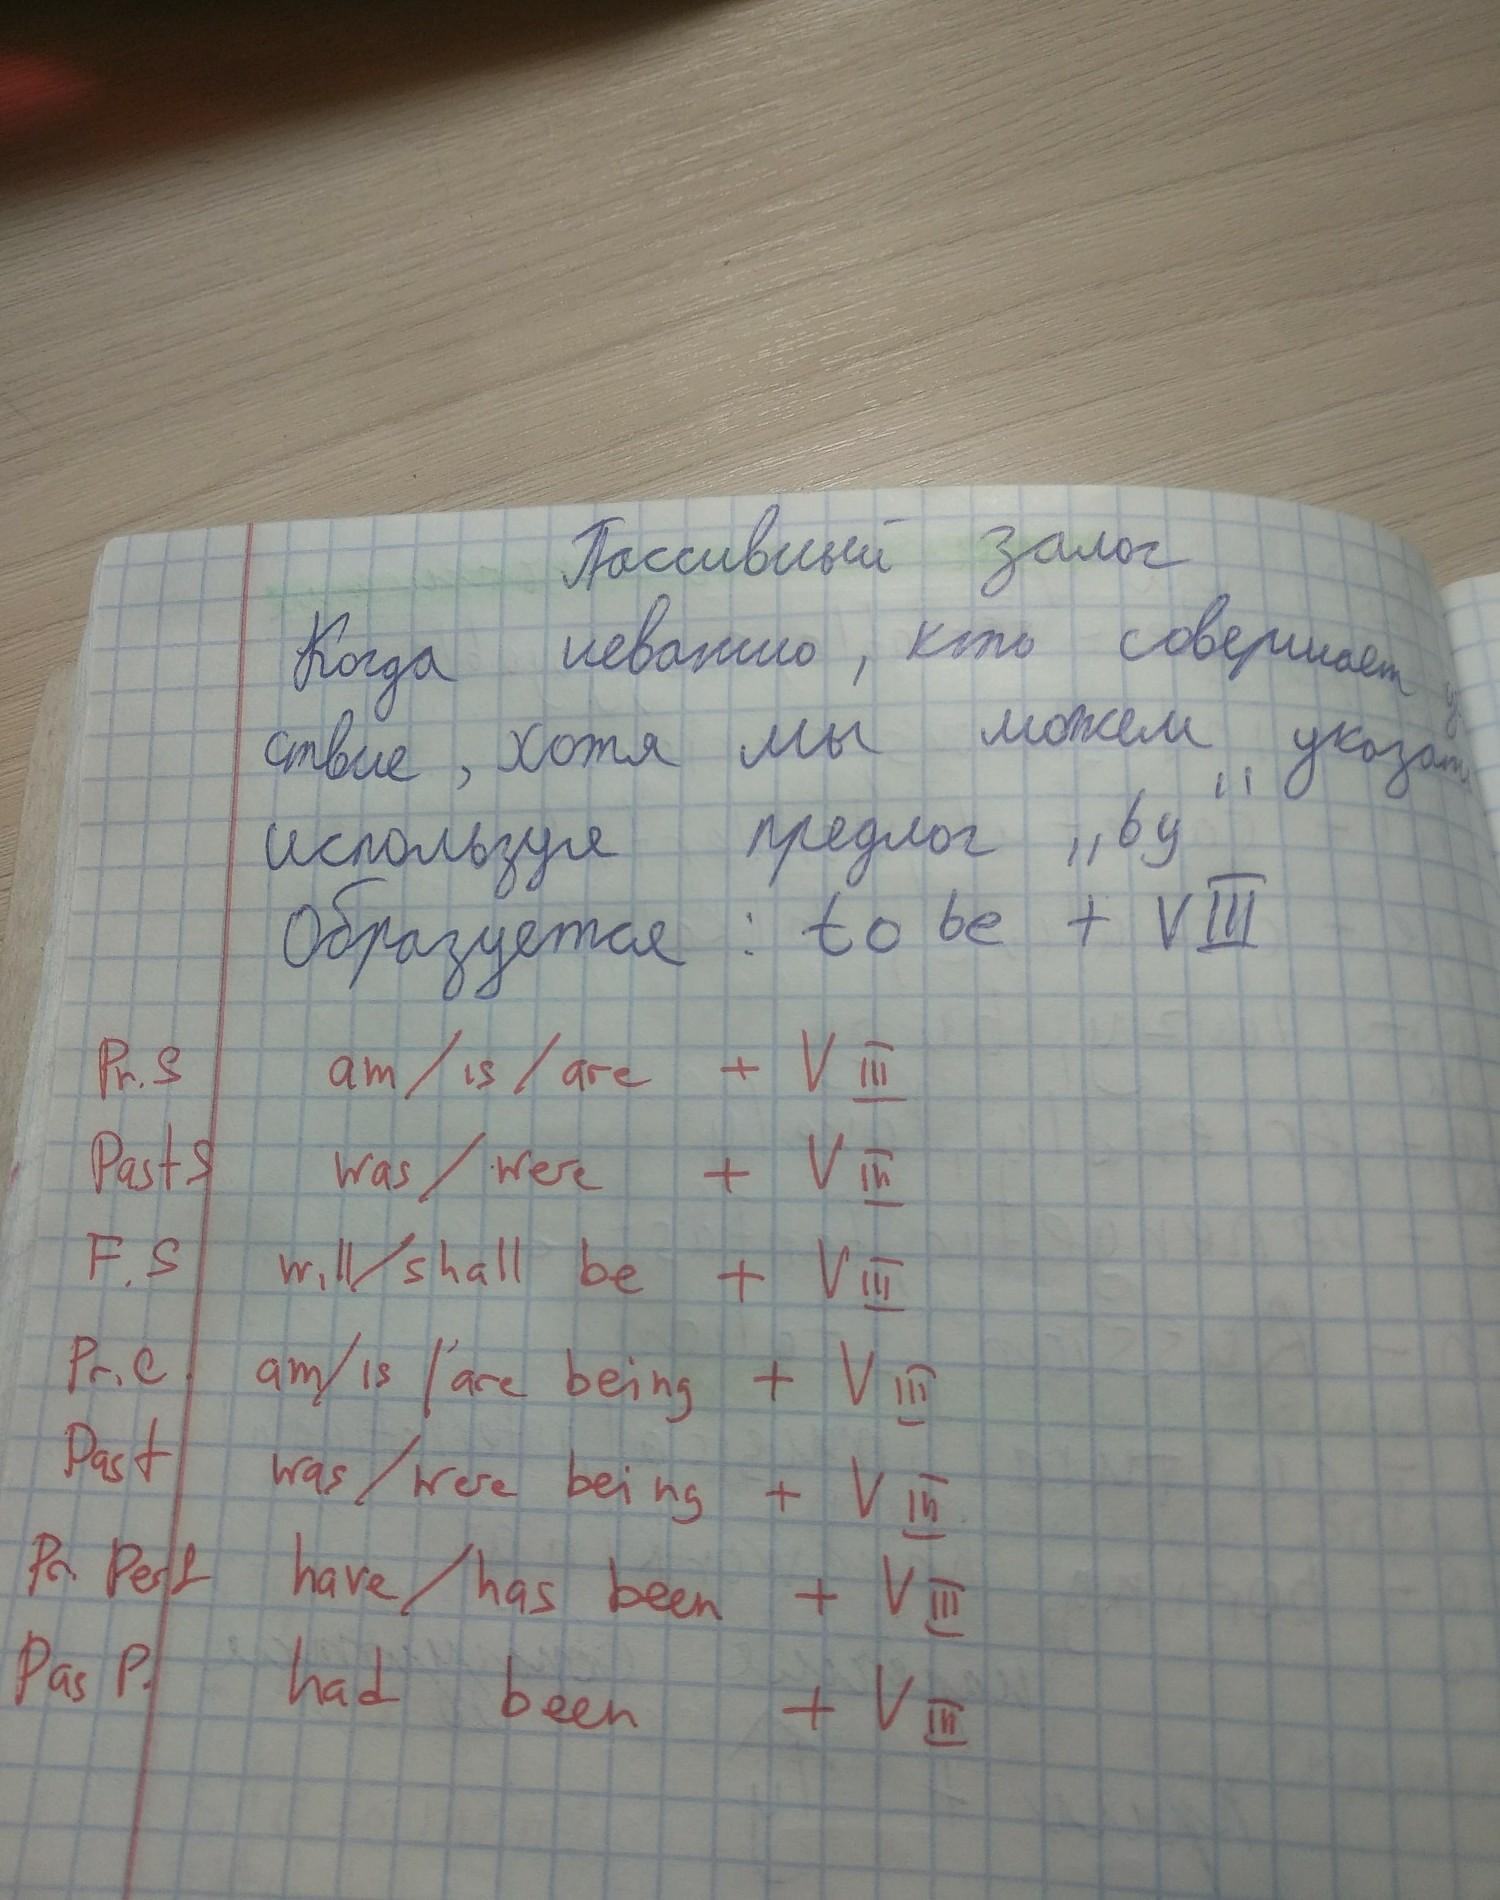 Пассивный залог
Когда неважно, кто совершает
ствие, хотя мы можем указать
используя предлог „by"
Образуется : to be + V III
Pr. S am/is/are + V III
Past S was/were + V III
F. S will/shall be + V III
Pr. C. am/is/are being + V III
Past was/were being + V III
Pr. Perf have/has been + V III
Pas P. had been + V III